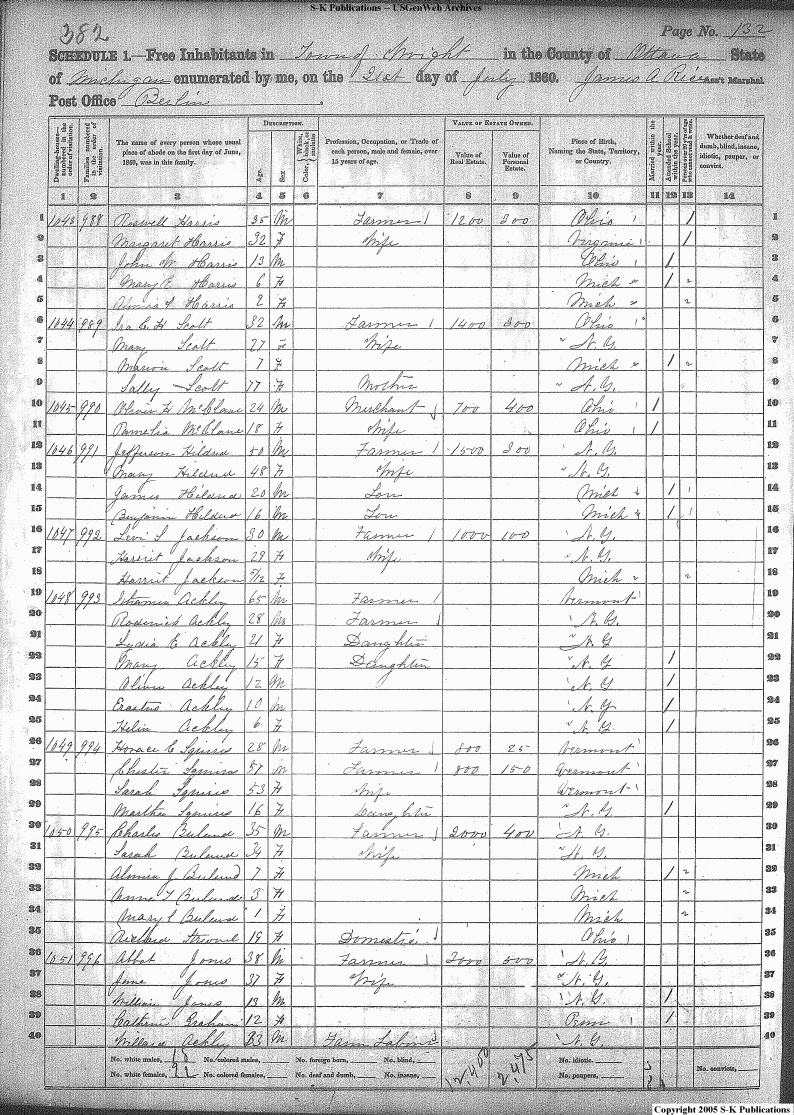 S-K Publications – USGenWeb Archives
382 Page No. 132
SCHEDULE 1.—Free Inhabitants in Town of Wright in the County of Ottawa State
of Michigan enumerated by me, on the 21st day of July 1860. James A Rice Ass't Marshal.
Post Office Berlin
Dwelling-houses— numbered in the order of visitation. Families numbered in the order of visitation. The name of every person whose usual place of abode on the first day of June, 1860, was in this family. DESCRIPTION. Age. Sex. Color, White, black, or mulatto. Profession, Occupation, or Trade of each person, male and female, over 15 years of age. VALUE OF ESTATE OWNED. Value of Real Estate. Value of Personal Estate. Place of Birth, Naming the State, Territory, or Country. Married within the year. Attended School within the year. Whether deaf and dumb, blind, insane, idiotic, pauper, or convict.
1 2 3 4 5 6 7 8 9 10 11 12 13 14
1 1043 988 Roswell Harris 35 M Farmer 1200 200 Ohio / 1
2 Margaret Harris 32 F Wife Virginia / 2
3 John W. Harris 13 M Ohio / 3
4 Mary E Harris 6 F Mich / 4
5 Harris 2 F Mich 5
6 1044 989 Ira C. H Scott 32 M Farmer 1400 200 Ohio 6
7 Mary Scott 27 F Wife N. Y. 7
8 Marion Scott 7 F Mich / 8
9 Sally Scott 77 F Mother N. Y. 9
10 1045 990 Oliver H McClane 24 M Merchant 700 400 Ohio / 10
11 Pamelia McClane 18 F Wife Ohio / 11
12 1046 991 Jefferson Hildred 50 M Farmer 1500 200 N. Y. 12
13 Mary Hildred 48 F Wife N. Y. 13
14 James Hildred 20 M Son Mich / 14
15 Benjamin Hildred 16 M Son Mich / 15
16 1047 992 Levi S Jackson 30 M Farmer 1000 100 N. Y. 16
17 Harriet Jackson 29 F Wife N. Y. 17
18 Harriet Jackson 5/12 F Mich 18
19 1048 993 Ackley 65 M Farmer Vermont 19
20 Roderick Ackley 28 M Farmer N. Y. 20
21 Lydia E Ackley 21 F Daughter N. Y 21
22 Mary Ackley 15 F Daughter N. Y / 22
23 Oliver Ackley 12 M N. Y / 23
24 Erastus Ackley 10 M N. Y / 24
25 Helen Ackley 6 F N. Y / 25
26 1049 994 Horace C Squires 28 M Farmer 800 25 Vermont 26
27 Chester Squires 57 M Farmer 800 150 Vermont 27
28 Sarah Squires 53 F Wife Vermont 28
29 Martha Squires 16 F Daughter N. Y / 29
30 1050 995 Charles Buland 35 M Farmer 2000 400 N. Y. 30
31 Sarah Buland 34 F Wife N. Y. 31
32 Almira J Buland 7 F Mich / 32
33 Anna T Buland 3 F Mich 33
34 Mary L Buland 1 F Mich 34
35 19 F Domestic Ohio 35
36 1051 996 Abbot Jones 38 M Farmer 3000 500 N. Y. 36
37 Jane Jones 37 F Wife N. Y. 37
38 William Jones 13 M N. Y. / 38
39 Catherine Graham 12 F Penn / 39
40 Ackley M Farm Labor N. Y. 40
No. white males, 18 No. colored males, No. foreign born, No. blind, 12,400 2,475 No. idiotic.
No. white females, 22 No. colored females, No. deaf and dumb, No. insane, No. paupers, No. convicts,
Copyright 2005 S-K Publications